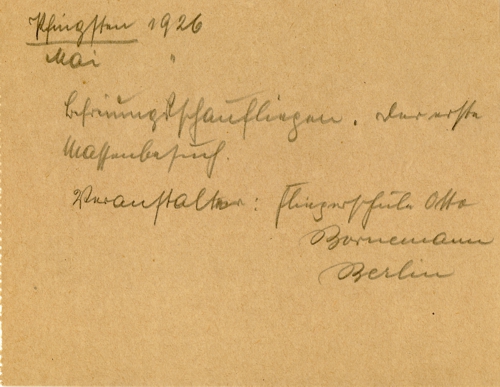 Pfingsten 1926
Mai "
Befreiungsschaufliegen. Der erste
Massenbesuch.
Veranstalter: Fliegerschule Otto
Bornemann
Berlin